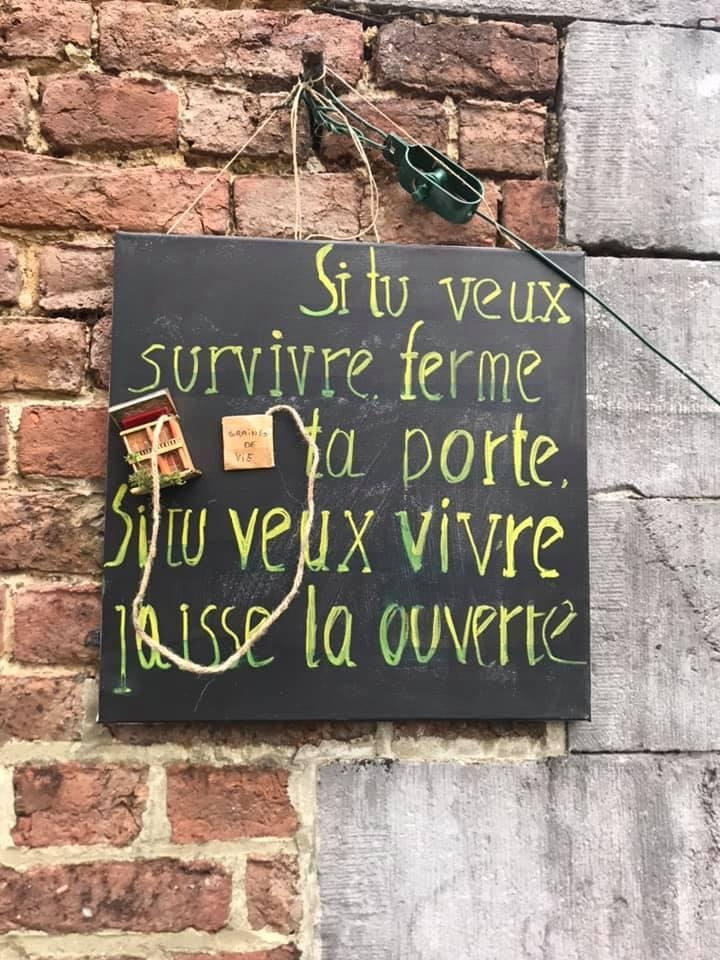 Si tu veux
survivre, ferme
ta porte.
Si tu veux vivre
laisse la ouverte
GRAINES
DE
VIE